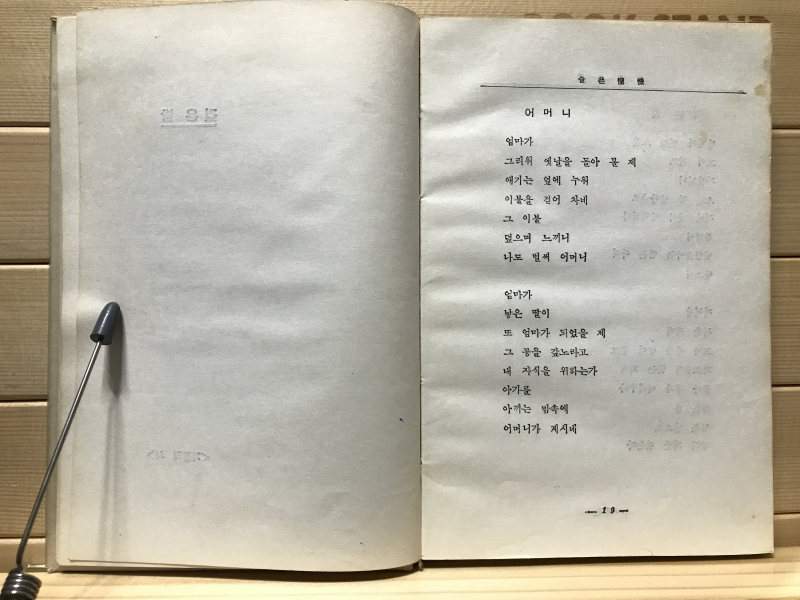 BOOK STAND
슬픈 憧憬
어 머 니
엄마가
그리워 옛날을 돌아 볼 제
애기는 옆에 누워
이불을 걷어 차네
그 이불
덮으며 느끼니
나도 벌써 어머니
엄마가
낳은 딸이
또 엄마가 되었을 제
그 공을 갚노라고
내 자식을 위하는가
아가를
아끼는 맘속에
어머니가 계시네
— 19 —